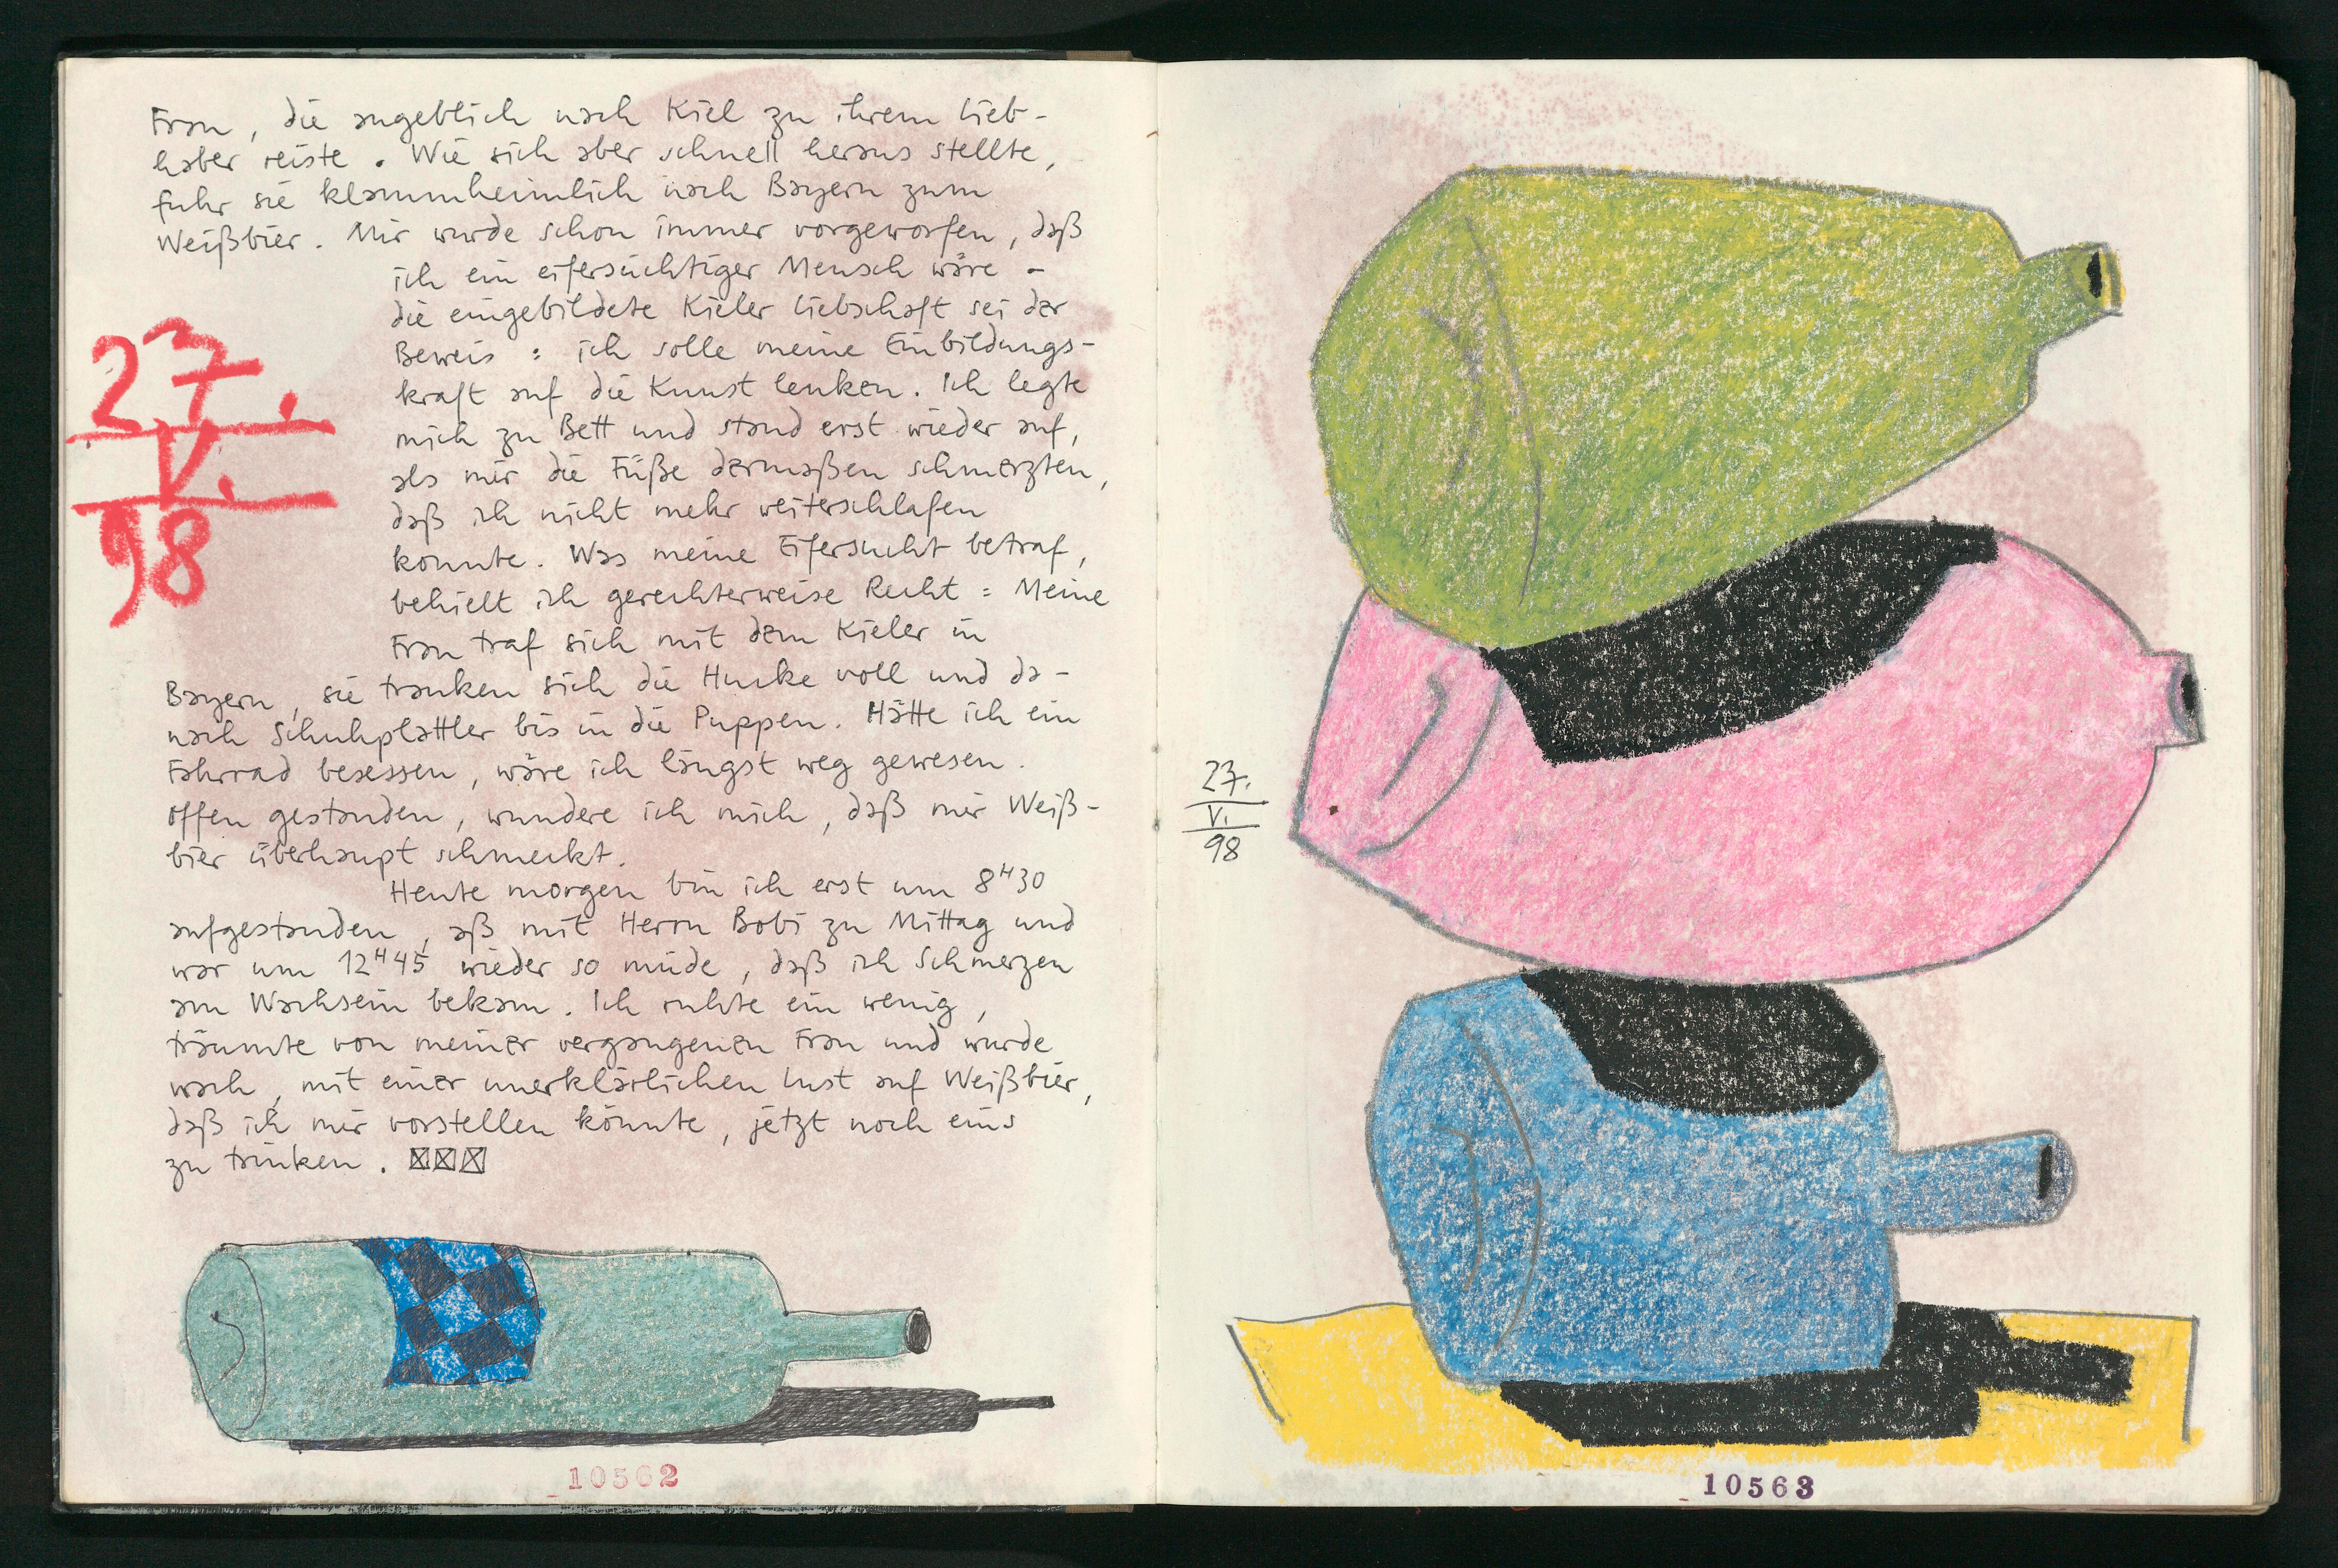 Frau, die angeblich nach Kiel zu ihrem Lieb-
haber reiste. Wie sich aber schnell heraus stellte,
fuhr sie klammheimlich nach Bayern zum
Weißbier. Mir wurde schon immer vorgeworfen, daß
ich ein eifersüchtiger Mensch wäre -
die eingebildete Kieler Liebschaft sei der
Beweis : ich solle meine Einbildungs-
kraft auf die Kunst lenken. Ich legte
mich zu Bett und stand erst wieder auf,
als mir die Füße dermaßen schmerzten,
daß ich nicht mehr weiterschlafen
konnte. Was meine Eifersucht betraf,
behielt ich gerechterweise Recht : Meine
Frau traf sich mit dem Kieler in
Bayern, sie tranken sich die Hucke voll und da-
nach Schuhplattler bis in die Puppen. Hätte ich ein
Fahrrad besessen, wäre ich längst weg gewesen.
Offen gestanden, wundere ich mich, daß mir Weiß-
bier überhaupt schmeckt.
Heute morgen bin ich erst um 8H30
aufgestanden, aß mit Herrn Bobi zu Mittag und
war um 12H45 wieder so müde, daß ich Schmerzen
am Wachsein bekam. Ich ruhte ein wenig,
träumte von meiner vergangenen Frau und wurde
wach, mit einer unerklärlichen Lust auf Weißbier,
daß ich mir vorstellen könnte, jetzt noch eins
zu trinken.
27.
V.
98
10562
27.
V.
98
10563